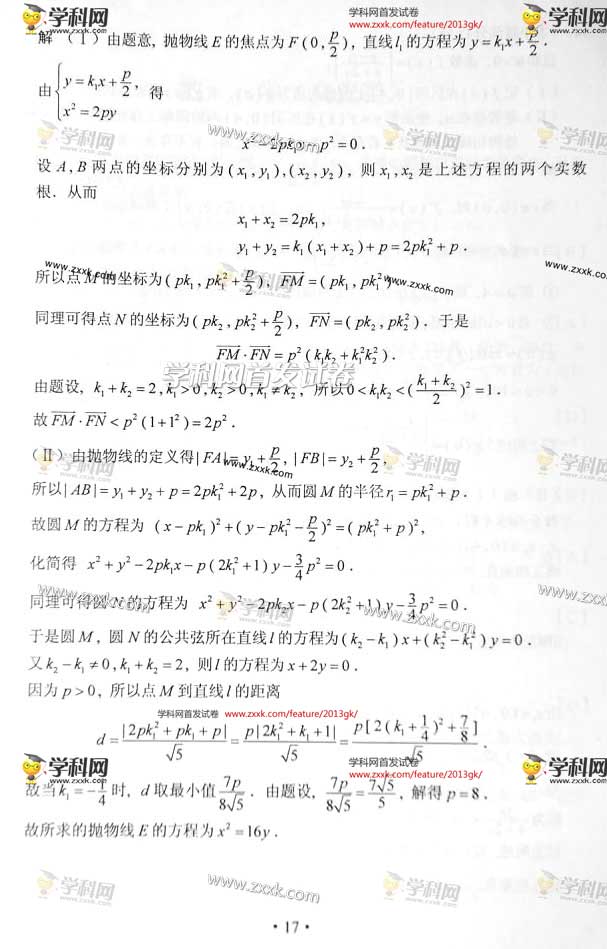 学科网首发试卷
www.zxxk.com/feature/2013gk/
解 （Ⅰ）由题意, 抛物线 E 的焦点为 F (0, p/2), 直线 l₁ 的方程为 y = k₁x + p/2.
由 { y = k₁x + p/2, x² = 2py 得
x² − 2pk₁x − p² = 0.
设 A, B 两点的坐标分别为 (x₁, y₁), (x₂, y₂), 则 x₁, x₂ 是上述方程的两个实数
根. 从而
x₁ + x₂ = 2pk₁,
y₁ + y₂ = k₁(x₁ + x₂) + p = 2pk₁² + p.
所以点 M 的坐标为 (pk₁, pk₁² + p/2), FM = (pk₁, pk₁²).
同理可得点 N 的坐标为 (pk₂, pk₂² + p/2), FN = (pk₂, pk₂²), 于是
FM · FN = p²(k₁k₂ + k₁²k₂²).
由题设, k₁ + k₂ = 2, k₁ > 0, k₂ > 0, k₁ ≠ k₂, 所以 0 < k₁k₂ < ((k₁ + k₂)/2)² = 1.
故 FM · FN < p²(1 + 1²) = 2p².
（Ⅱ）由抛物线的定义得 |FA| = y₁ + p/2, |FB| = y₂ + p/2,
所以 |AB| = y₁ + y₂ + p = 2pk₁² + 2p, 从而圆 M 的半径 r₁ = pk₁² + p.
故圆 M 的方程为 (x − pk₁)² + (y − pk₁² − p/2)² = (pk₁² + p)²,
化简得 x² + y² − 2pk₁x − p(2k₁² + 1)y − 3/4 p² = 0.
同理可得圆 N 的方程为 x² + y² − 2pk₂x − p(2k₂² + 1)y − 3/4 p² = 0.
于是圆 M, 圆 N 的公共弦所在直线 l 的方程为 (k₂ − k₁)x + (k₂² − k₁²)y = 0.
又 k₂ − k₁ ≠ 0, k₁ + k₂ = 2, 则 l 的方程为 x + 2y = 0.
因为 p > 0, 所以点 M 到直线 l 的距离
d = |2pk₁² + pk₁ + p|/√5 = p|2k₁² + k₁ + 1|/√5 = p[2(k₁ + 1/4)² + 7/8]/√5.
故当 k₁ = −1/4 时, d 取最小值 7p/8√5. 由题设, 7p/8√5 = 7√5/5, 解得 p = 8.
故所求的抛物线 E 的方程为 x² = 16y.
· 17 ·